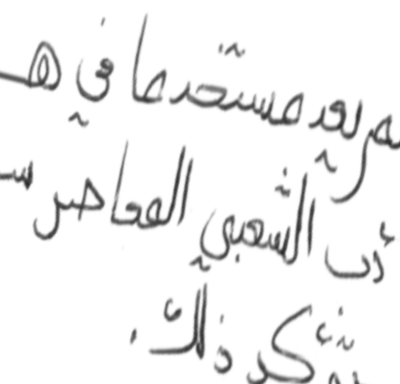 لم يعد مستخدما في هـ
دب الشعبي المعاصر
ذلك.